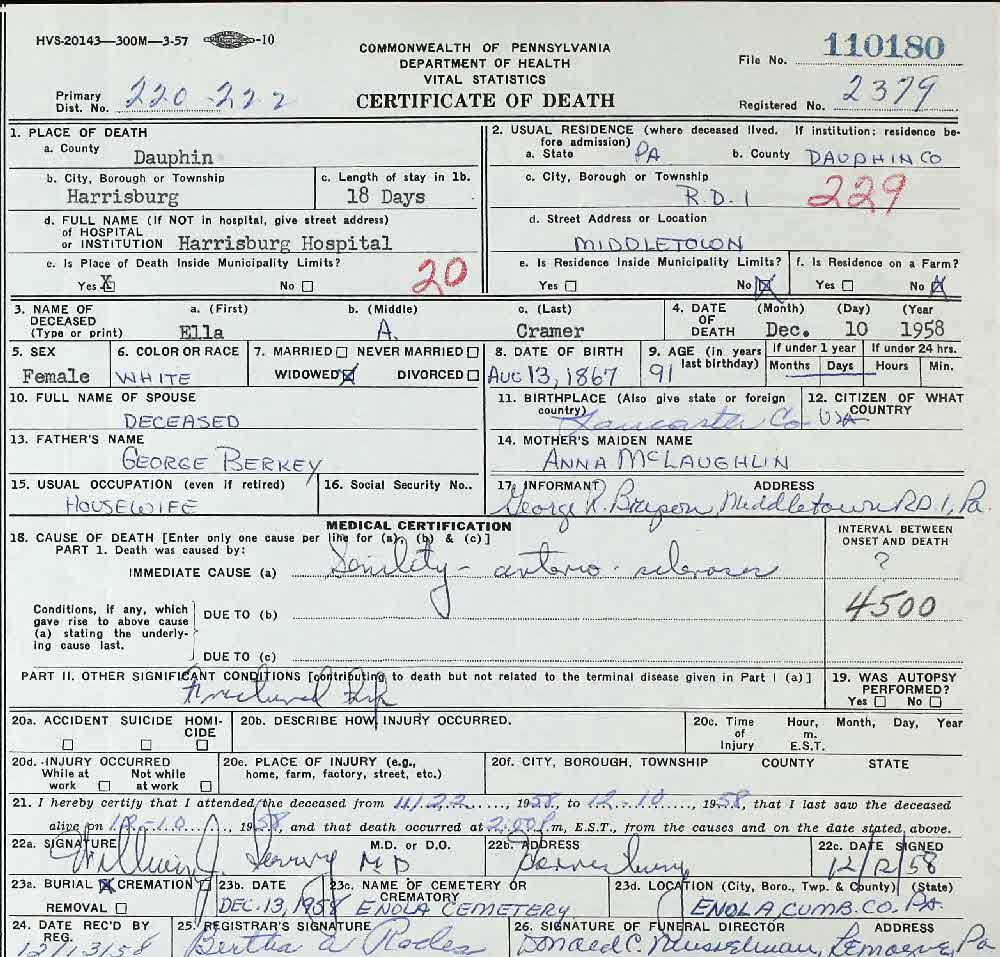 HVS-20143—300M—3-57 -10
COMMONWEALTH OF PENNSYLVANIA
DEPARTMENT OF HEALTH
VITAL STATISTICS
CERTIFICATE OF DEATH
File No. 110180
Primary Dist. No. 220-222
Registered No. 2379
1. PLACE OF DEATH
a. County Dauphin
2. USUAL RESIDENCE (where deceased lived. If institution: residence before admission)
a. State PA b. County DAUPHIN CO
b. City, Borough or Township Harrisburg
c. Length of stay in 1b. 18 Days
c. City, Borough or Township R.D. 1 229
d. FULL NAME (If NOT in hospital, give street address) of HOSPITAL or INSTITUTION Harrisburg Hospital
d. Street Address or Location MIDDLETOWN
e. Is Place of Death Inside Municipality Limits? 20
Yes X No
e. Is Residence Inside Municipality Limits? Yes No X
f. Is Residence on a Farm? Yes No X
3. NAME OF DECEASED (Type or print)
a. (First) Ella b. (Middle) A. c. (Last) Cramer
4. DATE OF DEATH (Month) (Day) (Year Dec. 10 1958
5. SEX Female
6. COLOR OR RACE WHITE
7. MARRIED NEVER MARRIED WIDOWED X DIVORCED
8. DATE OF BIRTH AUG 13, 1867
9. AGE (in years last birthday) 91
If under 1 year Months Days
If under 24 hrs. Hours Min.
10. FULL NAME OF SPOUSE DECEASED
11. BIRTHPLACE (Also give state or foreign country) Lancaster Co
12. CITIZEN OF WHAT COUNTRY USA
13. FATHER'S NAME GEORGE BERKEY
14. MOTHER'S MAIDEN NAME ANNA McLAUGHLIN
15. USUAL OCCUPATION (even if retired) HOUSEWIFE
16. Social Security No..
17. INFORMANT ADDRESS
George R. Middletown R.D. 1, Pa.
MEDICAL CERTIFICATION
18. CAUSE OF DEATH [Enter only one cause per line for (a), (b) & (c)]
PART 1. Death was caused by:
INTERVAL BETWEEN ONSET AND DEATH
IMMEDIATE CAUSE (a) Senility - arterio-sclerosis ?
4500
Conditions, if any, which gave rise to above cause (a) stating the underlying cause last.
DUE TO (b)
DUE TO (c)
PART II. OTHER SIGNIFICANT CONDITIONS [contributing to death but not related to the terminal disease given in Part I (a)]
Fractured hip
19. WAS AUTOPSY PERFORMED? Yes No
20a. ACCIDENT SUICIDE HOMICIDE
20b. DESCRIBE HOW INJURY OCCURRED.
20c. Time of Injury Hour, m. E.S.T. Month, Day, Year
20d. INJURY OCCURRED While at work Not while at work
20e. PLACE OF INJURY (e.g., home, farm, factory, street, etc.)
20f. CITY, BOROUGH, TOWNSHIP COUNTY STATE
21. I hereby certify that I attended the deceased from 11/22, 1958, to 12-10, 1958, that I last saw the deceased
alive on 12-10, 1958, and that death occurred at 2:00 P.m, E.S.T., from the causes and on the date stated above.
22a. SIGNATURE M.D. or D.O. William J. MD
22b. ADDRESS Harrisburg
22c. DATE SIGNED 12/12/58
23a. BURIAL X CREMATION REMOVAL
23b. DATE DEC. 13, 1958
23c. NAME OF CEMETERY OR CREMATORY ENOLA CEMETERY
23d. LOCATION (City, Boro., Twp. & County) (State) ENOLA, CUMB. CO. PA.
24. DATE REC'D BY REG. 12/13/58
25. REGISTRAR'S SIGNATURE Bertha A
26. SIGNATURE OF FUNERAL DIRECTOR ADDRESS
Donald C. Musselman, Lemoyne, Pa